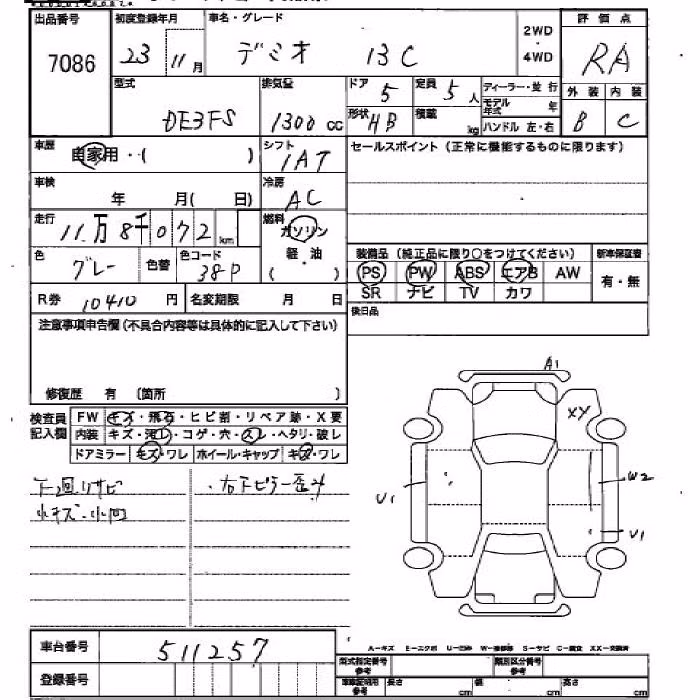 出品番号 初度登録年月 車名・グレード 2WD 評価点
7086 23 11月 デミオ 13C 4WD RA
型式 排気量 ドア 5 定員 5人 ディーラー・並行 外装 内装
DE3FS 1300cc 形状 HB 積載 kg モデル年式 年 B C
ハンドル 左・右
車歴 自家用・( ) シフト 1AT セールスポイント (正常に機能するものに限ります)
車検 年 月( 日) 冷房 AC
走行 11万8千072km 燃料 ガソリン
軽・油
( )
色 グレー 色替 色コード 38P 装備品 (純正品に限り○をつけてください) 新車保証書
PS PW ABS エアB AW 有・無
R券 10410円 名変期限 月 日 SR ナビ TV カワ
注意事項申告欄 (不具合内容等は具体的に記入して下さい) 後日品
修復歴 有 〔箇所 〕
検査員記入欄 FW キズ・飛石・ヒビ割・リペア跡・X要
内装 キズ・汚レ・コゲ・穴・スレ・ヘタリ・破レ
ドアミラー キズ・ワレ ホイール・キャップ キズ・ワレ
下廻りサビ ・右下ピラー歪み
小キズ・小凹
A1
XY
U1
W2
U1
車台番号 511257
A−キズ E−エクボ U−凹み W−補修跡 S−サビ C−腐食 XX−交換済
登録番号 型式指定番号 参考 類別区分番号 参考
車庫証明用 参考 長さ cm 幅 cm 高さ cm